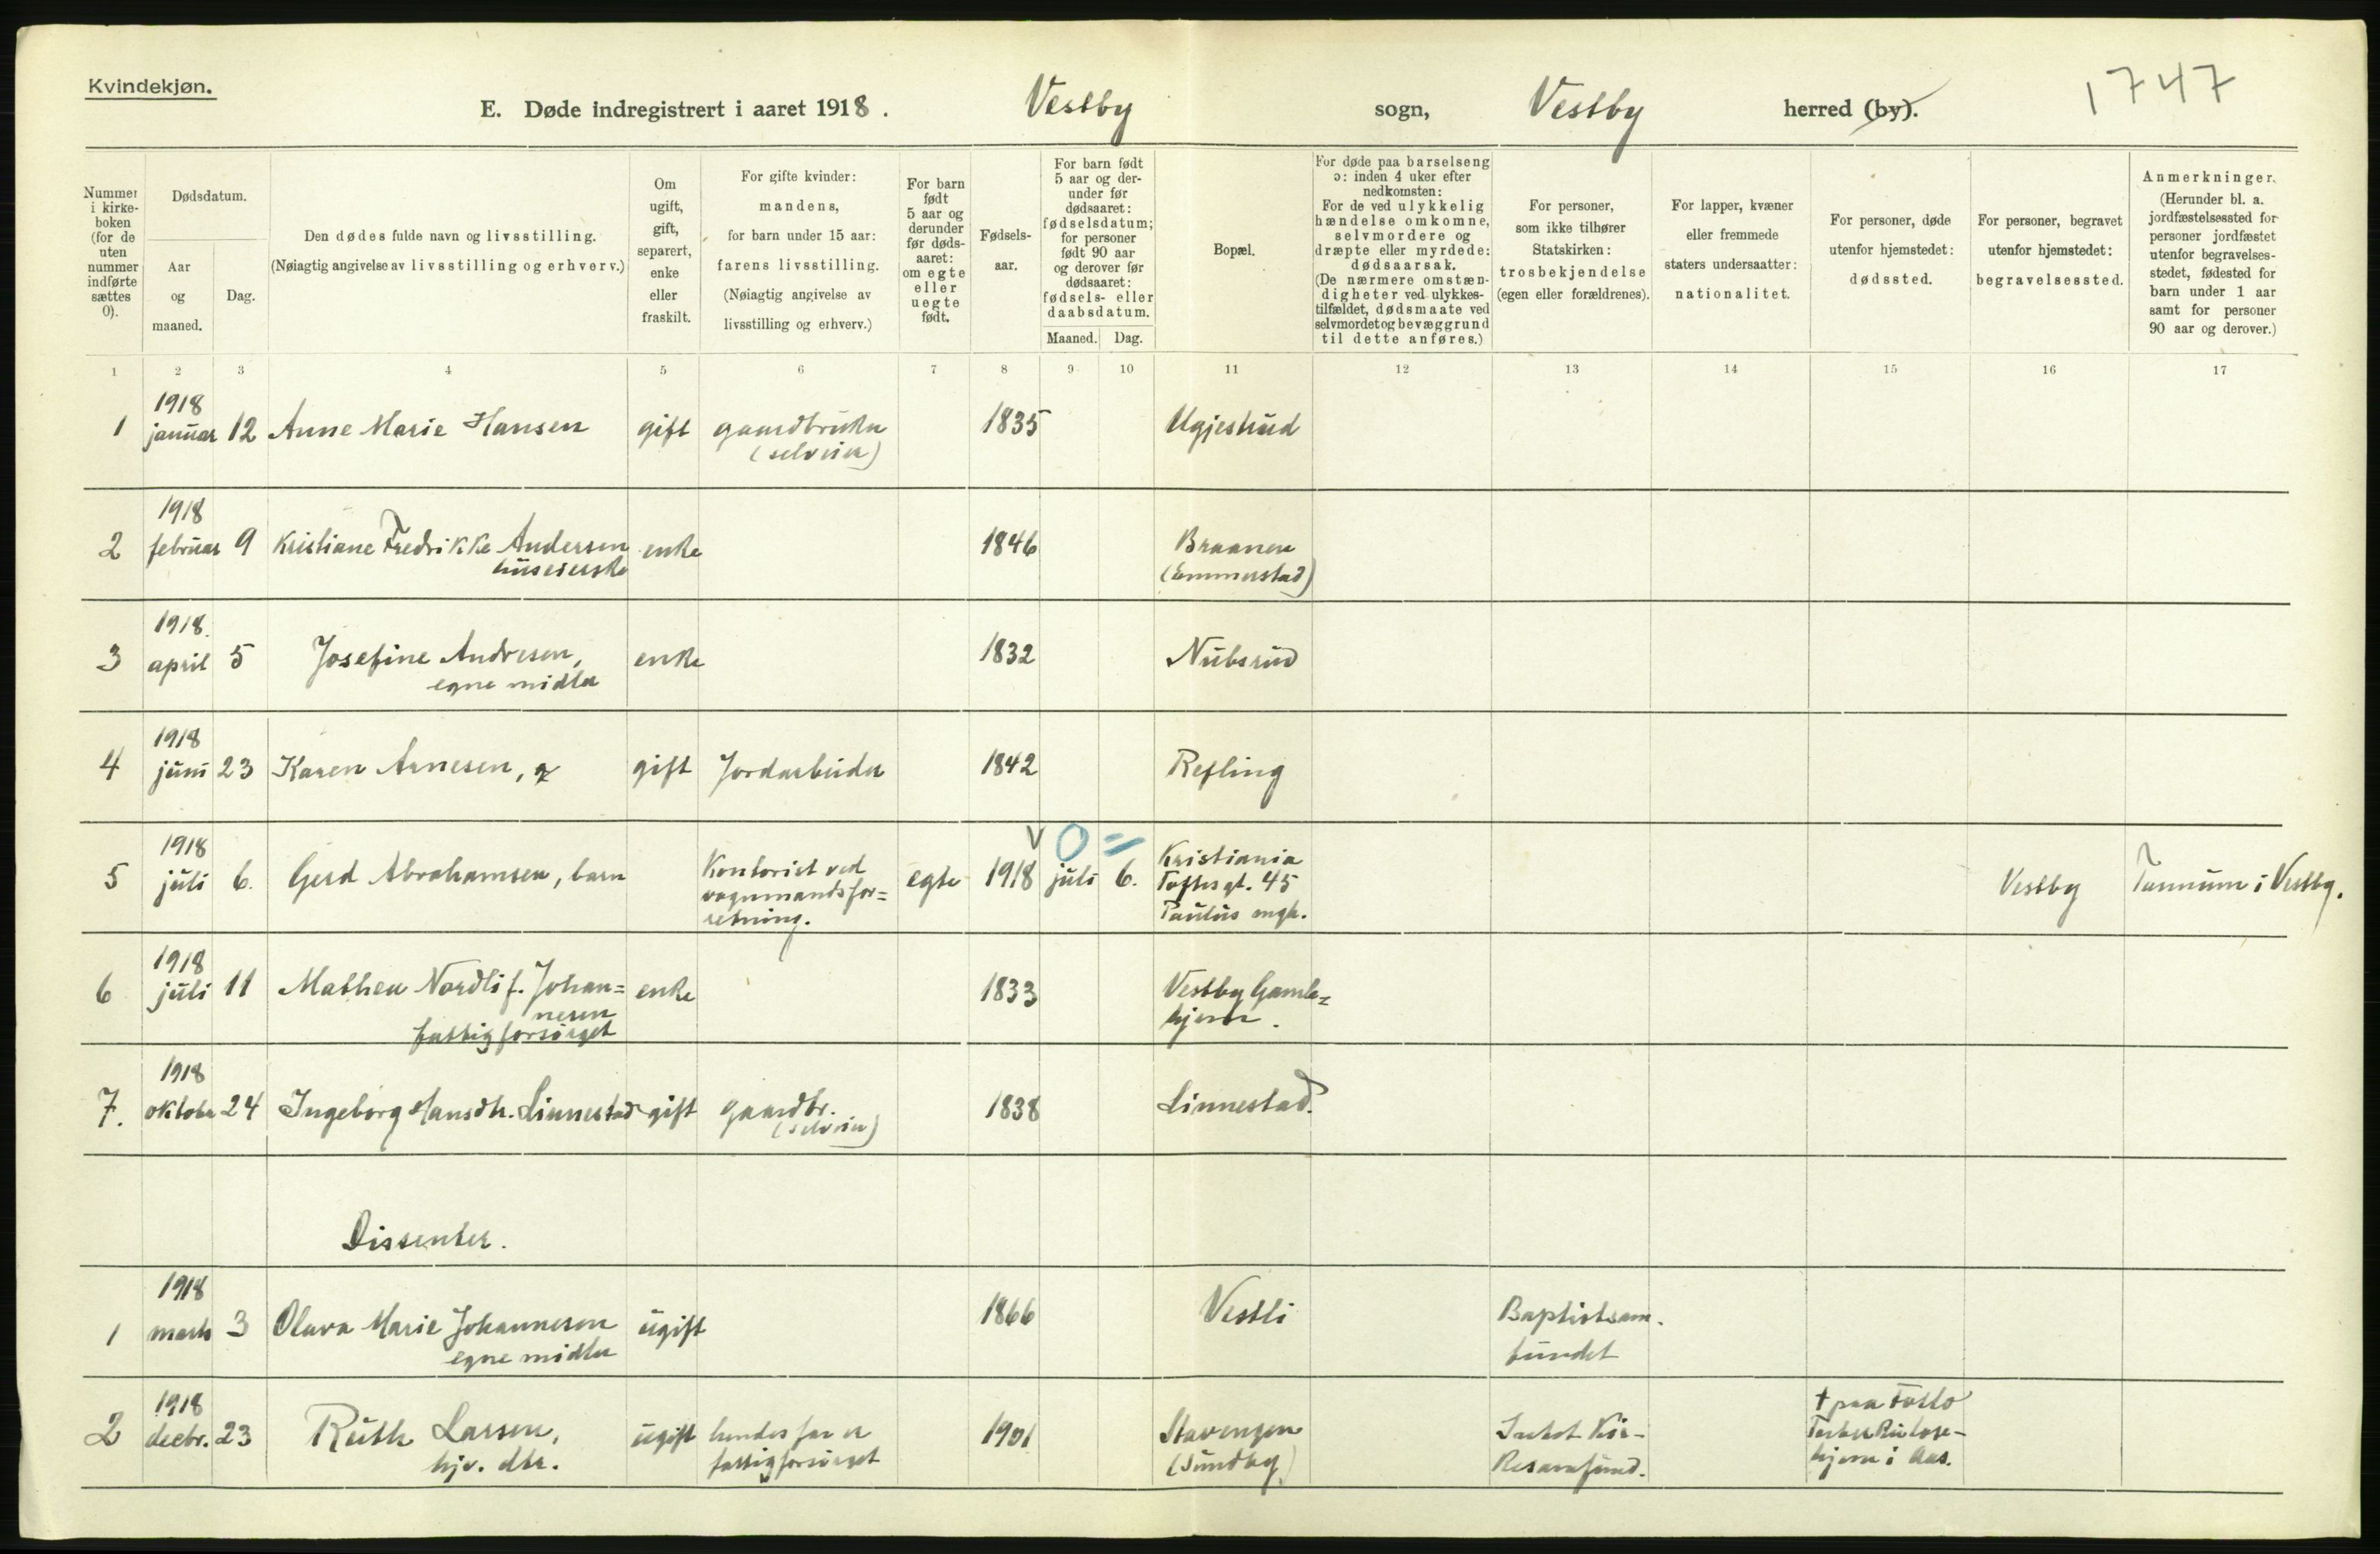 Kvindekjøn.
E. Døde indregistrert i aaret 1918. Vestby sogn, Vestby herred (by).
1747
Nummer i kirkeboken (for de uten nummer indførte sættes 0).
Dødsdatum.
Aar og maaned.
Dag.
Den dødes fulde navn og livsstilling.
(Nøiagtig angivelse av livsstilling og erhverv.)
Om ugift, gift, separert, enke eller fraskilt.
For gifte kvinder: mandens, for barn under 15 aar: farens livsstilling.
(Nøiagtig angivelse av livsstilling og erhverv.)
For barn født 5 aar og derunder før dødsaaret: om egte eller uegte født.
Fødselsaar.
For barn født 5 aar og derunder før dødsaaret: fødselsdatum; for personer født 90 aar og derover før dødsaaret: fødsels- eller daabsdatum.
Maaned. Dag.
Bopæl.
For døde paa barselseng ɔ: inden 4 uker efter nedkomsten:
For de ved ulykkelig hændelse omkomne, selvmordere og dræpte eller myrdede: dødsaarsak.
(De nærmere omstændigheter ved ulykkestilfældet, dødsmaate ved selvmordet og bevæggrund til dette anføres.)
For personer, som ikke tilhører Statskirken: trosbekjendelse (egen eller forældrenes).
For lapper, kvæner eller fremmede staters undersaatter: nationalitet.
For personer, døde utenfor hjemstedet: dødssted.
For personer, begravet utenfor hjemstedet: begravelsessted.
Anmerkninger.
(Herunder bl. a. jordfæstelsessted for personer jordfæstet utenfor begravelsesstedet, fødested for barn under 1 aar samt for personer 90 aar og derover.)
1 2 3 4 5 6 7 8 9 10 11 12 13 14 15 16 17
1 1918 januar 12 Anne Marie Hansen gift gaardbruker (selveier) 1835
2 1918 februar 9 Kristiane Fredrikke Andersen huseierske enke 1846 Braanen (Emmerstad)
3 1918 april 5 Josefine Andresen, egne midler enke 1832 Nubsrud
4 1918 juni 23 Karen Arnesen, gift Jordarbeider 1842 Refling
5 1918 juli 6. Gerd Abrahamsen, barn Kontorist ved vognmandsfor=retning. egte 1918 juli 6. Kristiania Toftesgt. 45 Paulus mgh. Vestby Tunnum i Vestby.
6 1918 juli 11 Mathea Nordli f. Johan=nesen fattigforsørget enke 1833 Vestby Gamle=hjem.
7. 1918 oktober 24 Ingeborg Hansdtr. Linnestad gift gaardbr. (selveier) 1838 Linnestad.
Dissenter.
1 1918 marts 3 Olava Marie Johannesen egne midler ugift 1866 Vestli Baptistsam.fundet
2 1918 decbr. 23 Ruth Larsen, hjv. dtr. ugift hendes far er fattigforsørget 1901 Stavengen (Sundby)
† paa Follo Tuberkulosehjem i Aas.